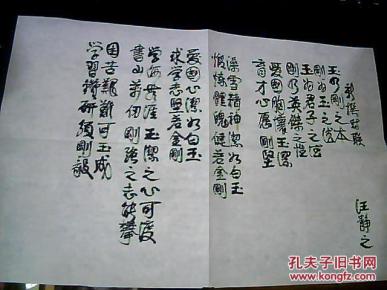 新撰对联
汪静之
玉乃刚之本
刚为玉之德
玉为君子之
刚乃英杰之
爱国胸怀玉洁
育才心愿刚坚
澡雪精神洁如白玉
锻炼体魄健若金刚
爱国心洁如白玉
求学志坚若金刚
学海无涯玉洁之心可渡
书山万仞刚强之志能攀
困苦艰难可玉成
学习钻研须刚毅
孔夫子旧书网